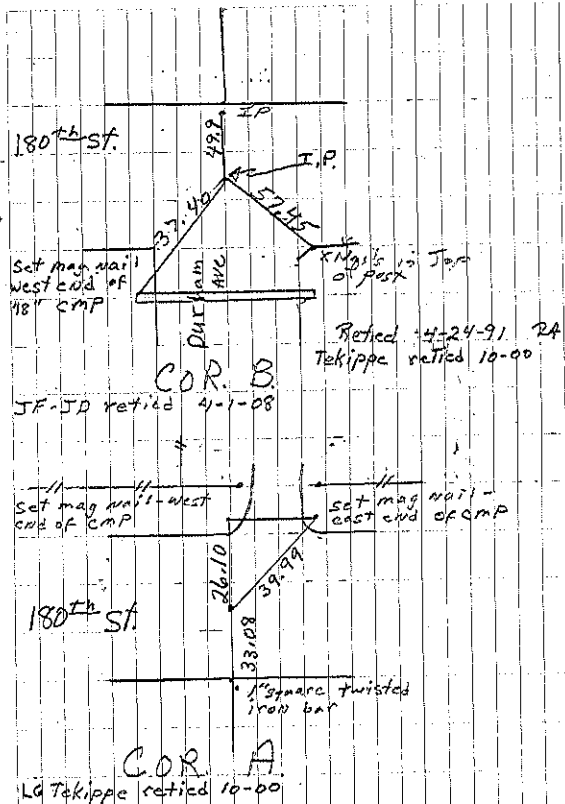 I.P.
180th St.
49.9
I.P.
37.40
57.45
Set mag nail
west end of
48" CMP
Durham
Ave
X Nails in Top
of post
Retied 4-24-91 RA
Tekippe retied 10-00
COR. B.
JF-JD retied 4-1-08
Set mag nail-west
end of cmp
Set mag nail-
east end of cmp
26.10
39.99
180th St.
33.08
1" square twisted
iron bar
COR A.
LG Tekippe retied 10-00